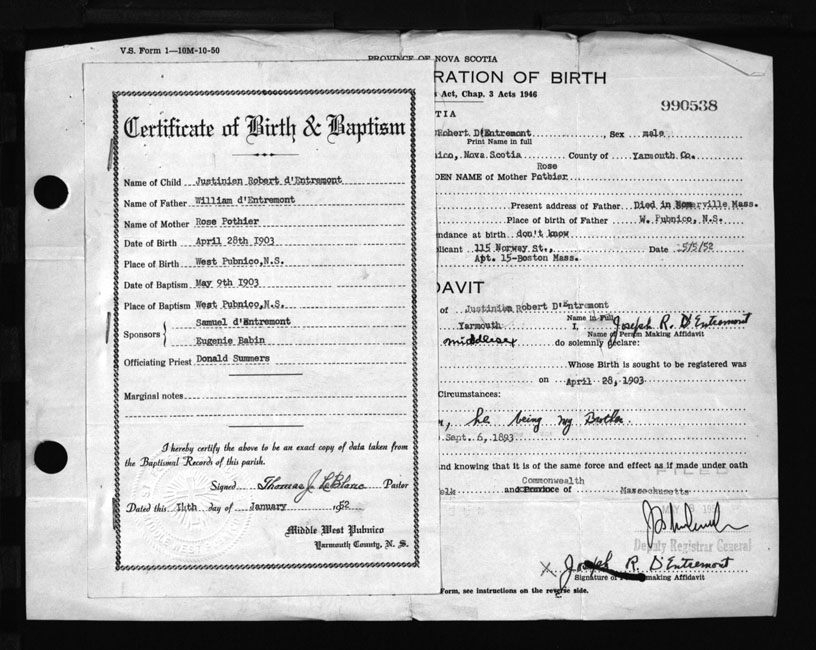 V.S. Form 1—10M-10-50
PROVINCE OF NOVA SCOTIA
RATION OF BIRTH
Act, Chap. 3 Acts 1946
990538
TIA
Robert D'Entremont, Sex male
Print Name in full
nico, Nova Scotia County of Yarmouth Co.
Rose
DEN NAME of Mother Pothier
Present address of Father Died in Somerville Mass.
Place of birth of Father W. Pubnico, N.S.
ndance at birth don't know
plicant 115 Norway St., Date 5/5/52
Apt. 15-Boston Mass.
DAVIT
of Justinien Robert D'Entremont
Name in Full
Yarmouth I, Joseph R. D'Entremont
Name of Person Making Affidavit
middlesex do solemnly declare:
Whose Birth is sought to be registered was
on April 28, 1903
Circumstances:
he being my Brother.
Sept. 6, 1893
nd knowing that it is of the same force and effect as if made under oath
FILED
Commonwealth
olk and Province of Massachusetts
MAY
Deputy Registrar General
X. Joseph R. D'Entremont
Signature of Person making Affidavit
Form, see instructions on the reverse side.
Certificate of Birth & Baptism
Name of Child Justinien Robert d'Entremont
Name of Father William d'Entremont
Name of Mother Rose Pothier
Date of Birth April 28th 1903
Place of Birth West Pubnico, N.S.
Date of Baptism May 9th 1903
Place of Baptism West Pubnico, N.S.
Samuel d'Entremont
Sponsors
Eugenie Babin
Officiating Priest Donald Summers
Marginal notes
I hereby certify the above to be an exact copy of data taken from
the Baptismal Records of this parish.
Signed Thomas J. LeBlanc Pastor
Dated this 14th day of January 1952
Middle West Pubnico
Yarmouth County, N. S.